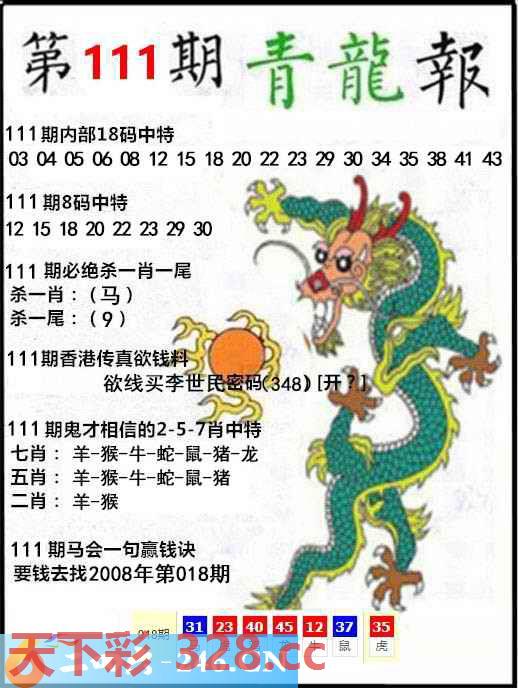 第111期青龍報
111期内部18码中特
03 04 05 06 08 12 15 18 20 22 23 29 30 34 35 38 41 43
111期8码中特
12 15 18 20 22 23 29 30
111期必绝杀一肖一尾
杀一肖：（马）
杀一尾：（9）
111期香港传真欲钱料
欲线买李世民密码(348)[开?]
111期鬼才相信的2-5-7肖中特
七肖：羊-猴-牛-蛇-鼠-猪-龙
五肖：羊-猴-牛-蛇-鼠-猪
二肖：羊-猴
111期马会一句赢钱诀
要钱去找2008年第018期
018期 31 23 40 45 12 37 35
牛 鼠 虎
天下彩-328.cc